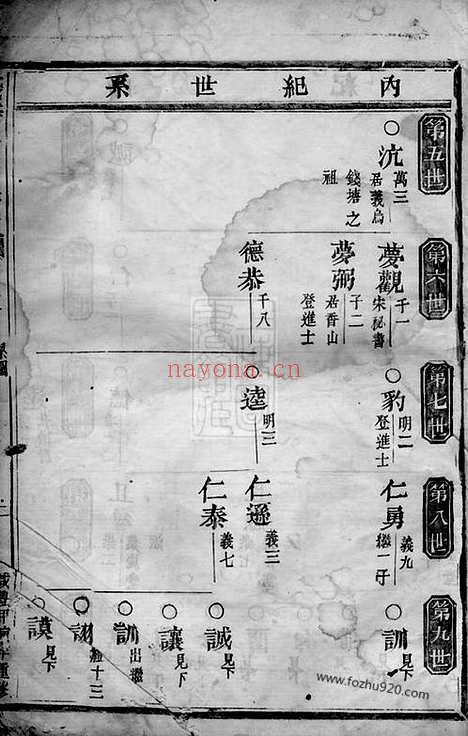 內紀世系
第五世
○沆 萬三
居義烏
錢塘之
祖
第六世
夢觀 千一
宋祕書
夢弼 子二
居香山
登進士
德恭 千八
第七世
○豹 明二
登進士
○逵 明三
第八世
仁勇 義九
繼一子
仁遜 義三
仁泰 義七
第九世
○訓 見下
○誠 見下
○讓 見下
○訓 出繼
○詡 繼十三
○謨 見下
nayona.cn
www.fozhu920.com